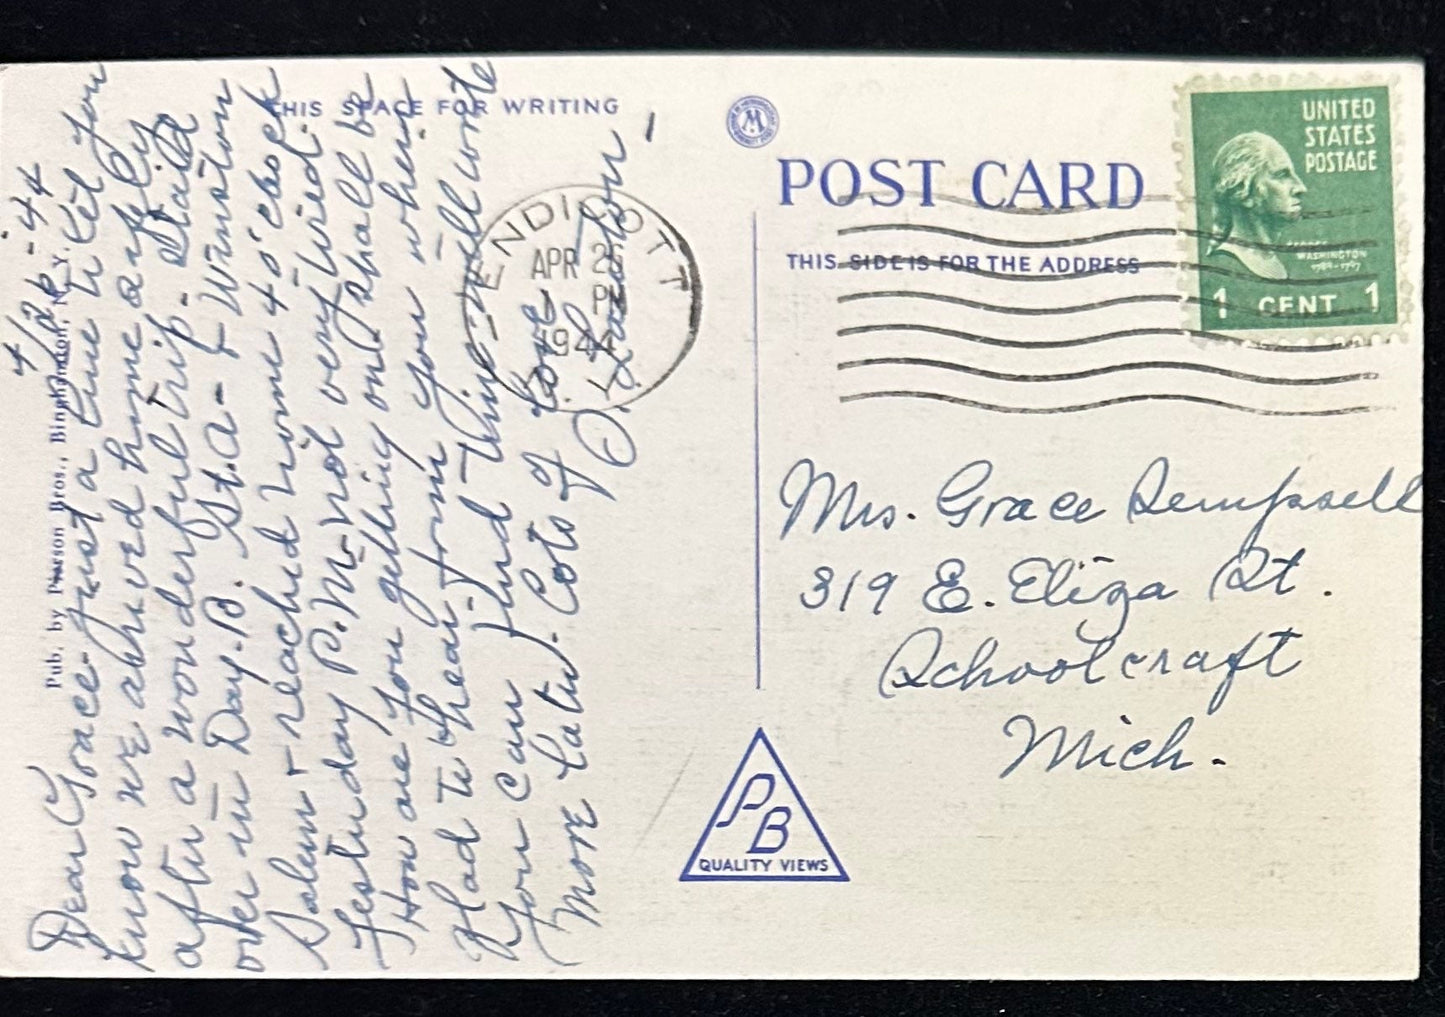 THIS SPACE FOR WRITING
POST CARD
THIS SIDE IS FOR THE ADDRESS
UNITED
STATES
POSTAGE
GEORGE
WASHINGTON
1789-1797
1 CENT 1
ENDICOTT
APR 26
PM
1944
Pub. by Pearson Bros., Binghamton, N. Y.
4/26-44
Dear Grace - Just a line to let you
know we arrived home safely
after a wonderful trip. Staid
over in Day. B. St. A - & Winston
Salem & reached home 4 o'clock
Yesterday P.M. not very tired.
How are you getting on? Shall be
glad to hear from you when
you can find time. Will write
more later. Lots of love
to you
Mrs. Grace Dempsell
319 E. Eliza St.
Schoolcraft
Mich.
PB
QUALITY VIEWS